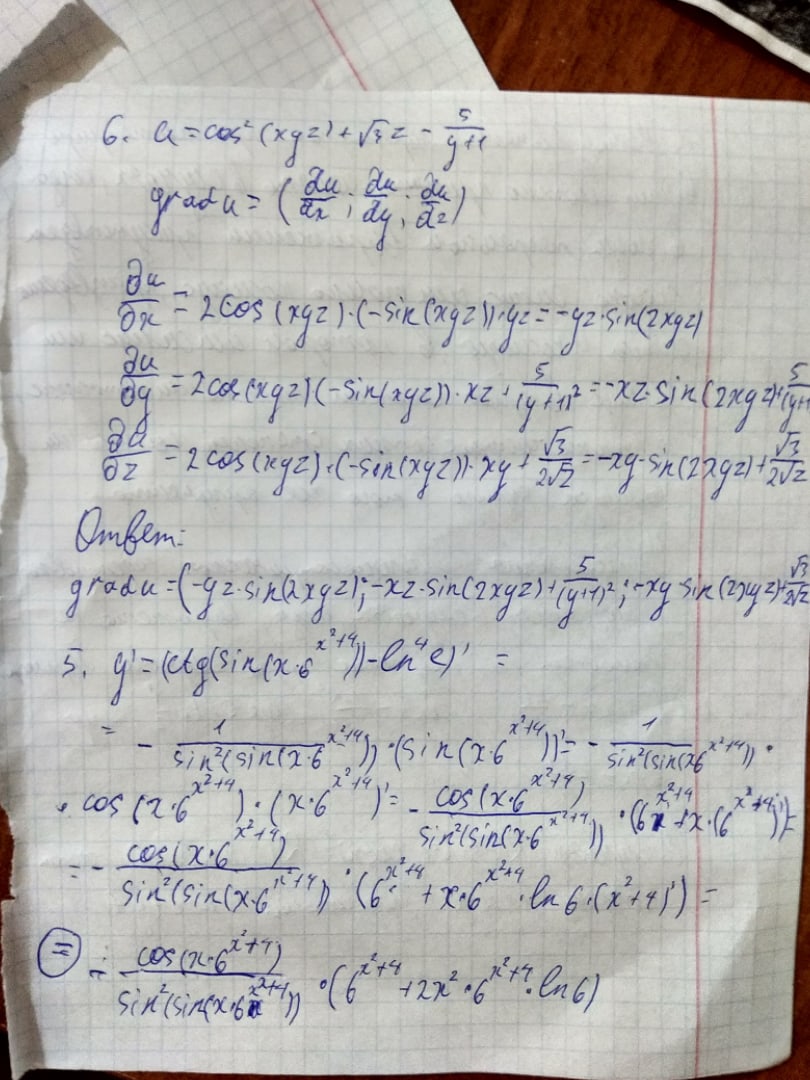 6. u = cos²(xyz) + √3z − 5/(y+1)
grad u = (∂u/∂x; ∂u/∂y; ∂u/∂z)
∂u/∂x = 2cos(xyz)·(−sin(xyz))·yz = −yz·sin(2xyz)
∂u/∂y = 2cos(xyz)(−sin(xyz))·xz + 5/(y+1)² = −xz·sin(2xyz) + 5/(y+1
∂u/∂z = 2cos(xyz)·(−sin(xyz))·xy + √3/2√z = −xy·sin(2xyz) + √3/2√z
Ответ:
grad u = (−yz·sin(2xyz); −xz·sin(2xyz) + 5/(y+1)²; −xy·sin(2xyz) + √3/2√z
5. y' = (ctg(sin(x·6^(x²+4))) − ln⁴e)' =
= − 1/sin²(sin(x·6^(x²+4))) · (sin(x·6^(x²+4)))' = − 1/sin²(sin(x6^(x²+4))) ·
· cos(x·6^(x²+4)) · (x·6^(x²+4))' = − cos(x·6^(x²+4))/sin²(sin(x·6^(x²+4))) · (6^(x²+4) + x·(6^(x²+4))') =
= − cos(x·6^(x²+4))/sin²(sin(x·6^(x²+4))) · (6^(x²+4) + x·6^(x²+4)·ln6·(x²+4)') =
= − cos(x·6^(x²+4))/sin²(sin(x·6^(x²+4))) · (6^(x²+4) + 2x²·6^(x²+4)·ln6)